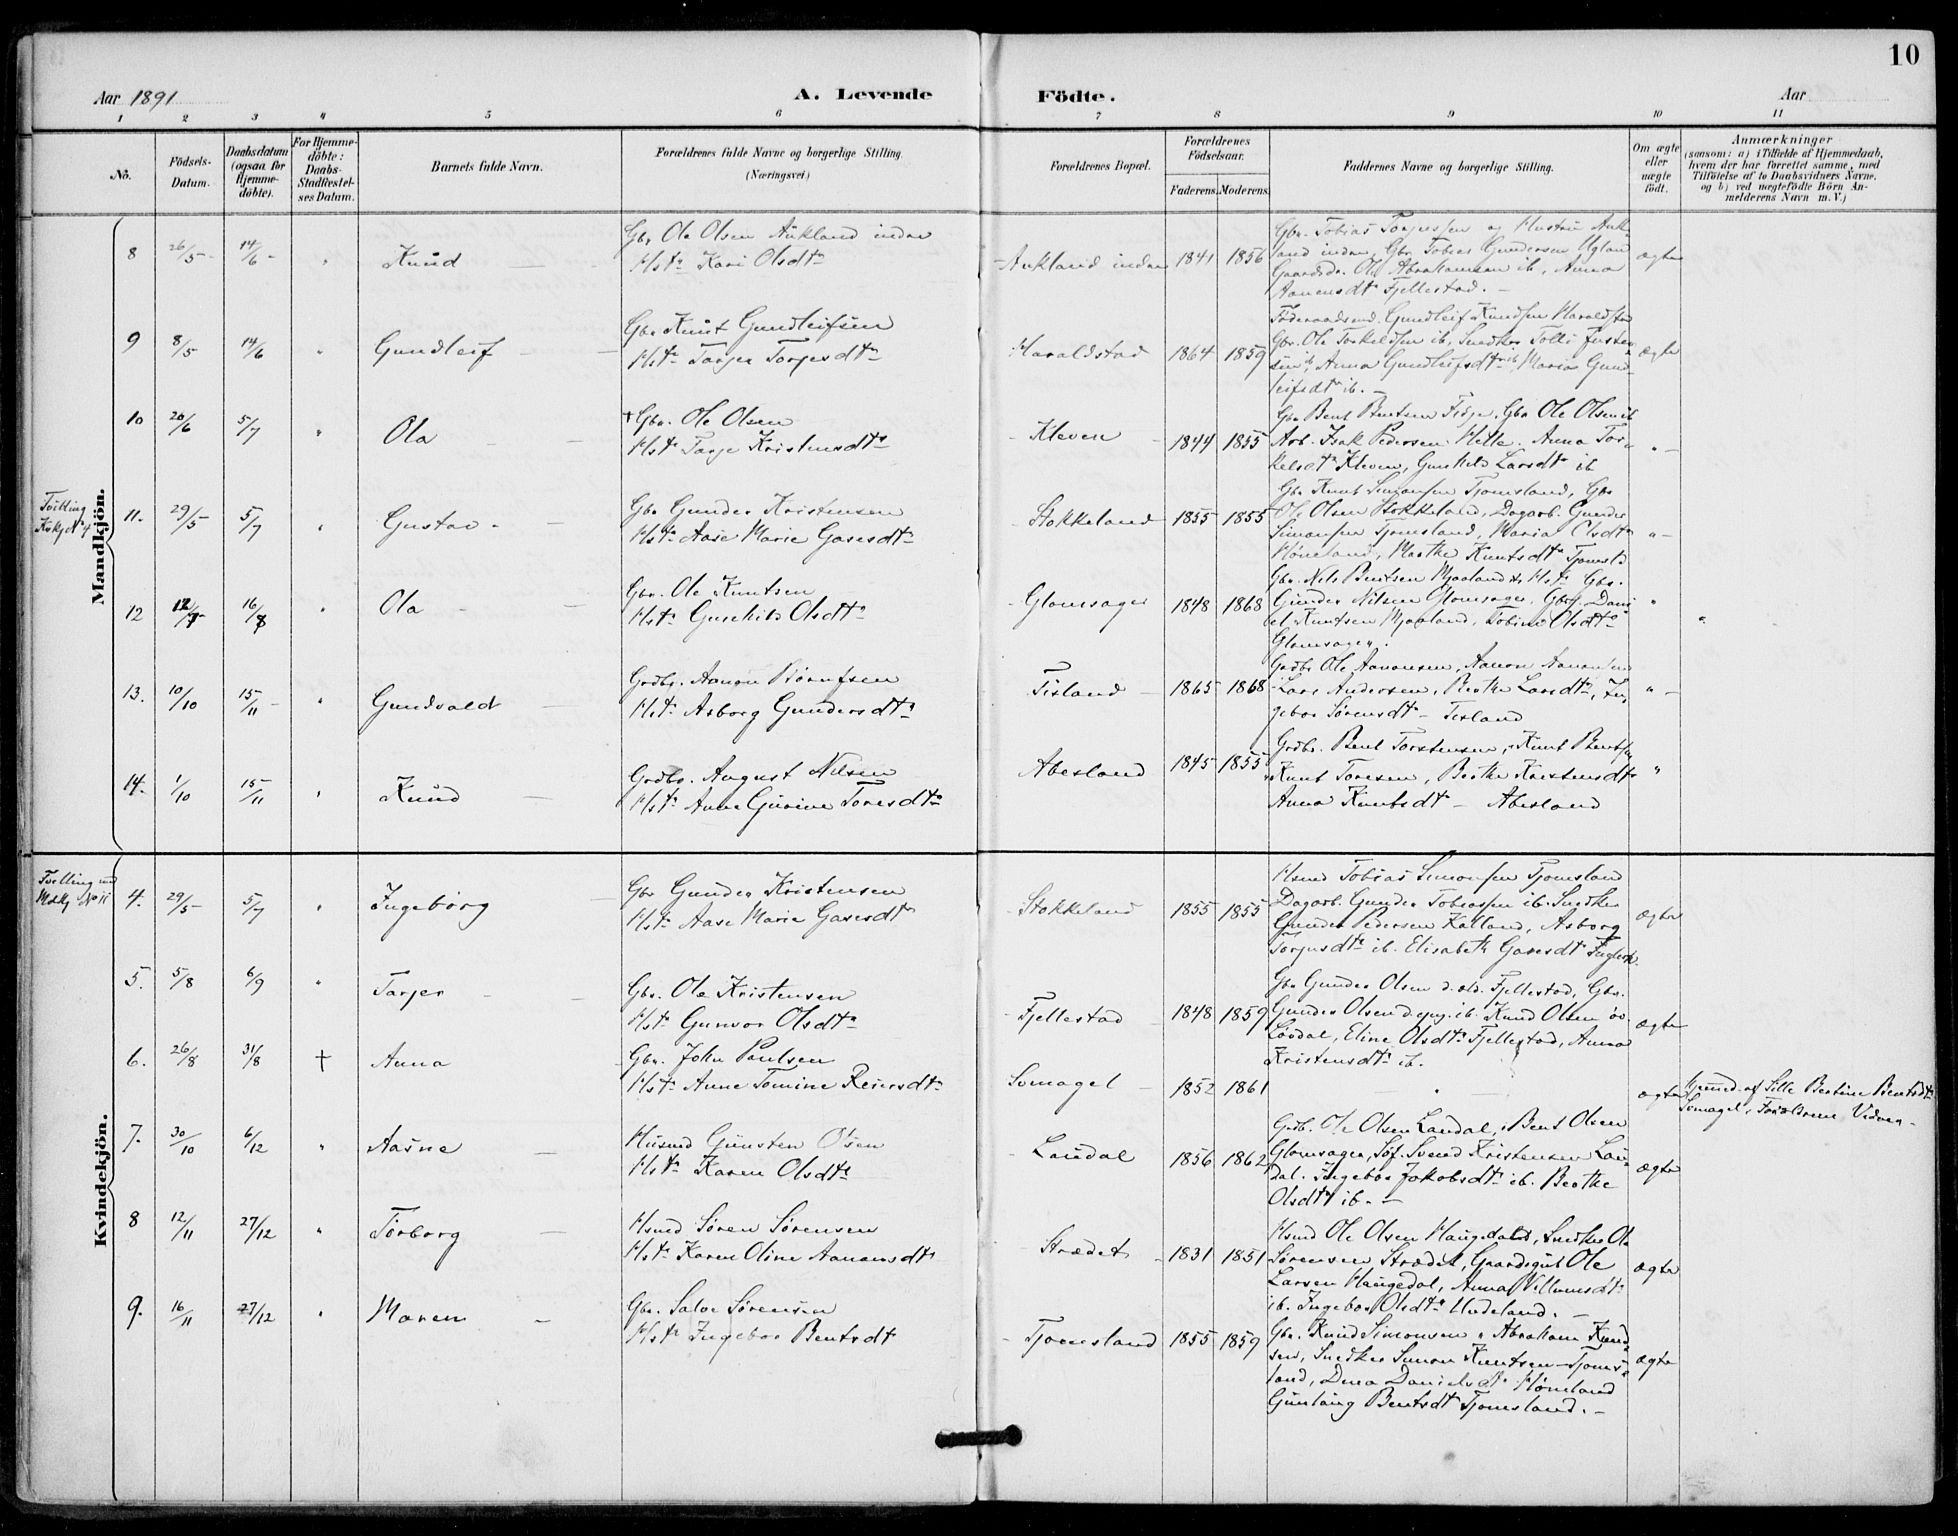 10
Aar 1891
A. Levende Födte.
Aar
1 2 3 4 5 6 7 8 9 10 11
No.
Födsels-Datum.
Daabsdatum (ogsaa for Hjemme-döbte).
For Hjemme-döbte: Daabs-Stadfæstel-ses Datum.
Barnets fulde Navn.
Forældrenes fulde Navne og borgerlige Stilling
(Næringsvei.)
Forældrenes Bopæl.
Forældrenes Födselsaar.
Faderens. Moderens.
Faddernes Navne og borgerlige Stilling.
Om ægte eller uægte födt.
Anmærkninger
(saasom: a) i Tilfælde af Hjemmedaab,
hvem der har forrettet samme, med
Tilföielse af to Daabsvidners Navne.
og b) ved uægtefödte Börn An-
melderens Navn m. V.)
Mandkjön.
8 26/5 14/6 " Knud
Gbr Ole Olsen Aukland indre
Hst. Kari Olsdtr
Aukland indre 1841 1856
Gbr. Tobias Torjussen og Hustru Auk-
land indre, Gbr Tobias Gundersen Uglan
Gaardsdr. Ole Abrahamsen ib, Anna
Aanensdtr Fjellestad. -
ægte
9 8/5 14/6 " Gundleif
Gbr Knut Gundleifsen
Hst. Tarjer Torjusdtr
Haraldstad 1864 1859
Föderaadsmd. Gundleif Knudsen Haraldstad
Gbr. Ole Torkeldsen ib, Snedker Tolli Justen-
sen ib, Anna Gundleifsdtr ib, Maria Gund-
leifsdtr ib. -
ægte
10 20/6 5/7 " Ola
+ Gbr. Ole Olsen
Hst. Tarje Kristensdtr
Kleven 1844 1855
Gbr Bent Bentsen Fidje, Gbr Ole Olsen ib
Arb. Isak Pedersen Helle. Anna Tor-
kelsdtr Kleven, Gunhild Larsdtr ib
" -
Tvilling
Kvkj No 4
11. 29/5 5/7 " Gustav
Gbr Gunder Kristensen
Hst. Aase Marie Gasesdtr
Stokkeland 1855 1855
Gbr Knut Simonsen Tjomsland, Gbr
Ole Olsen Stokkeland, Dagarb. Gunder
Simonsen Tjomsland, Maria Olsdtr
Höneland, Marthe Knutsdtr Tjomsld
" -
12 12/7 16/8 " Ola
Gbr. Ole Knutsen
Hst. Gunhild Olsdtr
Glomsager 1848 1868
Gbr. Nils Bentsen Mjaaland & Hst. Gbr.
Gunder Nilsen Glomsager. Gbr. Dani-
el Knutsen Mjaaland, Tobine Olsdtr
Glomsager.
"
13. 10/10 15/11 " Gundvald
Grdbr. Aanon Börufsen
Hst. Asborg Gundersdtr
Tisland 1865 1868
Grdbr Ole Aanonsen, Aanon Aanonsen
Lars Andersen, Berthe Larsdtr, In-
gebor Sörensdtr - Tisland
" -
14. 1/10 15/11 " Knud
Grdbr. August Nilsen
Hst. Anne Gurine Toresdtr
Abesland 1845 1855
Grdbr. Bent Torstensen, Knut Bentsen
Knut Toresen, Berthe Kristensdtr
Anna Knutsdtr - Abesland
"
Kvindekjön.
Tvilling med
Mdkj No 11
4. 29/5 5/7 " Ingebörg
Gbr Gunder Kristensen
Hst. Aase Marie Gasesdtr
Stokkeland 1855 1855
Hsmd Tobias Simonsen Tjomsland
Dagarb. Gunder Tobiassen ib. Snedker
Gunder Pedersen Kalland, Asborg
Torjusdtr ib. Elisabeth Gasesdtr
ægte
5. 5/8 6/9 " Tarjer
Gbr. Ole Kristensen
Hst. Gunvor Olsdtr
Fjellestad 1848 1859
Gbr Gunder Olsen d. old. Fjellestad, Gbr.
Gunder Olsen d. yng. ib. Knud Olsen öv.
Lovdal, Eline Olsdtr Fjellestad, Anna
Kristensdtr ib.
ægte
6. 26/8 31/8 † Anna
Gbr. John Paulsen
Hst. Anne Tomine Reiersdtr
Somagel 1852 1861 "
ægte
Hjemmed. af Sille Bertine Bentsdtr
Somagel, Forældrene Vidner.
7. 30/10 6/12 " Aasne
Husmd Gunsten Olsen
Hst. Karen Olsdtr
Laudal 1856 1862
Grdb. Ole Olsen Laudal, Bent Olsen
Glomsager, Söf. Svend Kristensen Lau-
dal. Ingebor Jakobsdtr ib. Berthe
Olsdtr ib. -
ægte
8 12/11 27/12 " Törborg
Hsmd Sören Sörensen
Hst. Karen Oline Aanonsdtr
Strædet 1831 1851
Hsmd Ole Olsen Haugedal, Snedker Ole
Sörensen Strædet, Gaardsgut Ole
Larsen Haugedal, Anna Villumsdtr
ib. Ingebor Olsdtr Udeland. -
ægte
9. 16/11 27/12 " Maren
Gbr. Salve Sörensen
Hst. Ingebor Bentsdt
Tjomsland 1855 1859
Gbr. Knud Simonsen, Abraham Knud-
sen, Snedker Simon Knutsen Tjoms-
land, Dina Danielsdtr Höneland
Gunlaug Bentsdt Tjomsland. -
ægte